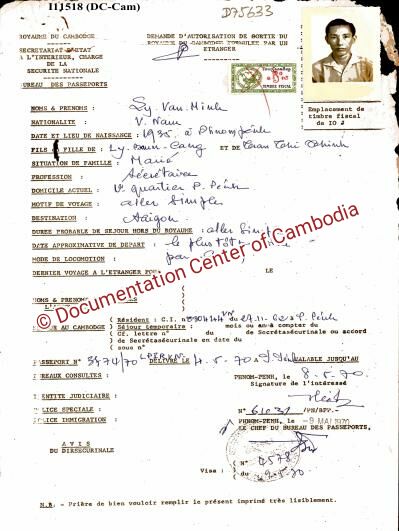 111518 (DC-Cam)
D75633
ROYAUME DU CAMBODGE
DEMANDE D'AUTORISATION DE SORTIE DU
SECRETARIAT D'ETAT
ROYAUME DU CAMBODGE FORMULEE PAR UN
A L'INTERIEUR, CHARGE
ETRANGER
DE LA
SECURITE NATIONALE
BUREAU DES PASSEPORTS
TIMBRE FISCAL
Emplacement de
timbre fiscal
de 10 #
NOMS & PRENOMS : Ly Van Minh
NATIONALITE : V. Nam
DATE ET LIEU DE NAISSANCE : 1935 à Phnompenh
FILS FILLE DE : Ly ET DE Tran Thi
SITUATION DE FAMILLE : Marié
PROFESSION : Secrétaire
DOMICILE ACTUEL : quartier P. Penh
MOTIF DE VOYAGE : aller simple
DESTINATION : Saigon
DUREE PROBABLE DE SEJOUR HORS DU ROYAUME : aller
DATE APPROXIMATIVE DE DEPART : le plus tôt
MODE DE LOCOMOTION : par
DERNIER VOYAGE A L'ETRANGER LE
NOMS & PRENOMS
© Documentation Center of Cambodia
( Résident : C.I. n° du à P. Penh
AU CAMBODGE ( Séjour temporaire : mois ou an à compter du
( Cf. lettre n° du de Secrétasédeurile ou accord
( de Secrétasédeurile en date du
( sous n°
PASSEPORT N° 3974/70 DELIVRE LE 4.5.70 VALABLE JUSQU'AU
BUREAUX CONSULTES : PHNOM-PENH, le 8.5.70
Signature de l'intéressé
IDENTITE JUDICIAIRE :
POLICE SPECIALE : N° /PN/BPP.-
POLICE IMMIGRATION : PHNOM-PENH, le -9 MAI 1970
LE CHEF DU BUREAU DES PASSEPORTS,
A V I S
DU DIRSECURINALE
( N° 4578
Visa : (
( du 9.5.70
N.B. - Prière de bien vouloir remplir le présent imprimé très lisiblement.